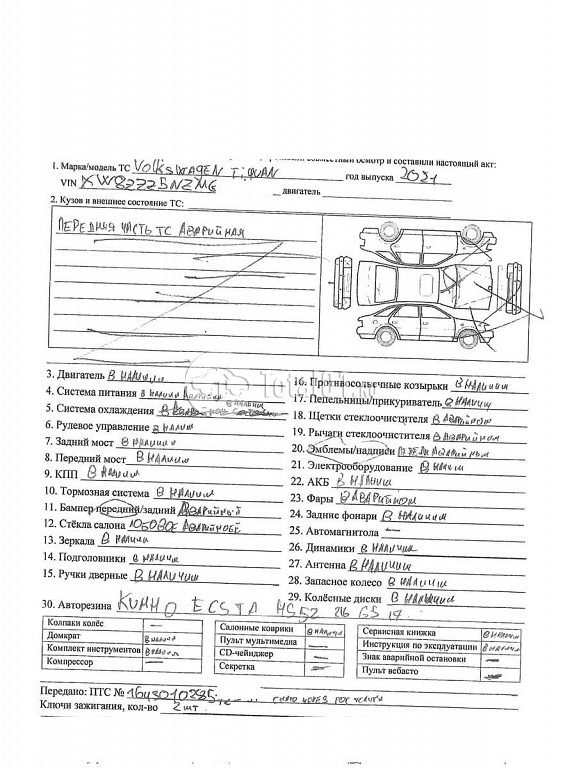 совместный осмотр и составили настоящий акт:
1. Марка/модель ТС Volkswagen Tiguan год выпуска 2021
VIN XW8ZZZ5NZMG двигатель
2. Кузов и внешнее состояние ТС:
Передняя часть ТС Аварийная
3. Двигатель В наличии
4. Система питания В наличии
5. Система охлаждения В наличии
6. Рулевое управление В наличии
7. Задний мост В наличии
8. Передний мост В наличии
9. КПП В наличии
10. Тормозная система В наличии
11. Бампер передний/задний Аварийный
12. Стёкла салона Лобовое Аварийное
13. Зеркала В наличии
14. Подголовники В наличии
15. Ручки дверные В наличии
16. Противосолнечные козырьки В наличии
17. Пепельницы/прикуриватель В наличии
18. Щетки стеклоочистителя В Аварийном
19. Рычаги стеклоочистителя В Аварийном
20. Эмблемы/надписи Аварийный
21. Электрооборудование В наличии
22. АКБ В наличии
23. Фары В Аварийном
24. Задние фонари В наличии
25. Автомагнитола —
26. Динамики В наличии
27. Антенна В наличии
28. Запасное колесо В наличии
29. Колёсные диски В наличии
30. Авторезина KUMHO ECSTA HS52
Колпаки колёс —
Домкрат В наличии
Комплект инструментов В наличии
Компрессор —
Салонные коврики В наличии
Пульт мультимедиа —
CD-чейнджер —
Секретка —
Сервисная книжка В наличии
Инструкция по эксплуатации В наличии
Знак аварийной остановки —
Пульт вебасто —
Передано: ПТС № снято через гос услуги
Ключи зажигания, кол-во 2 шт.
Total01.ru